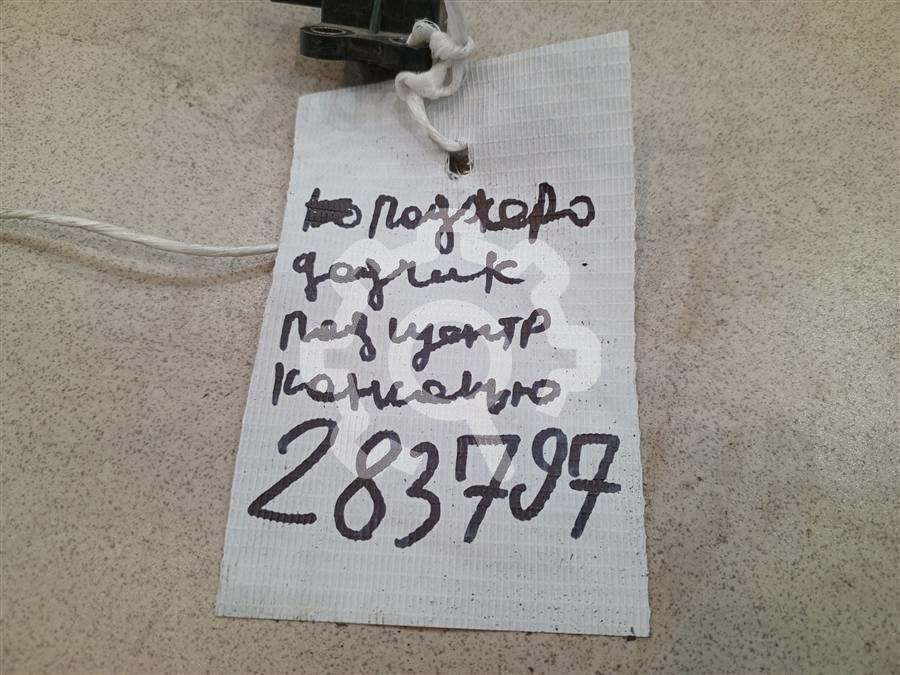 Паджеро
датчик
под центр
консолью
283797